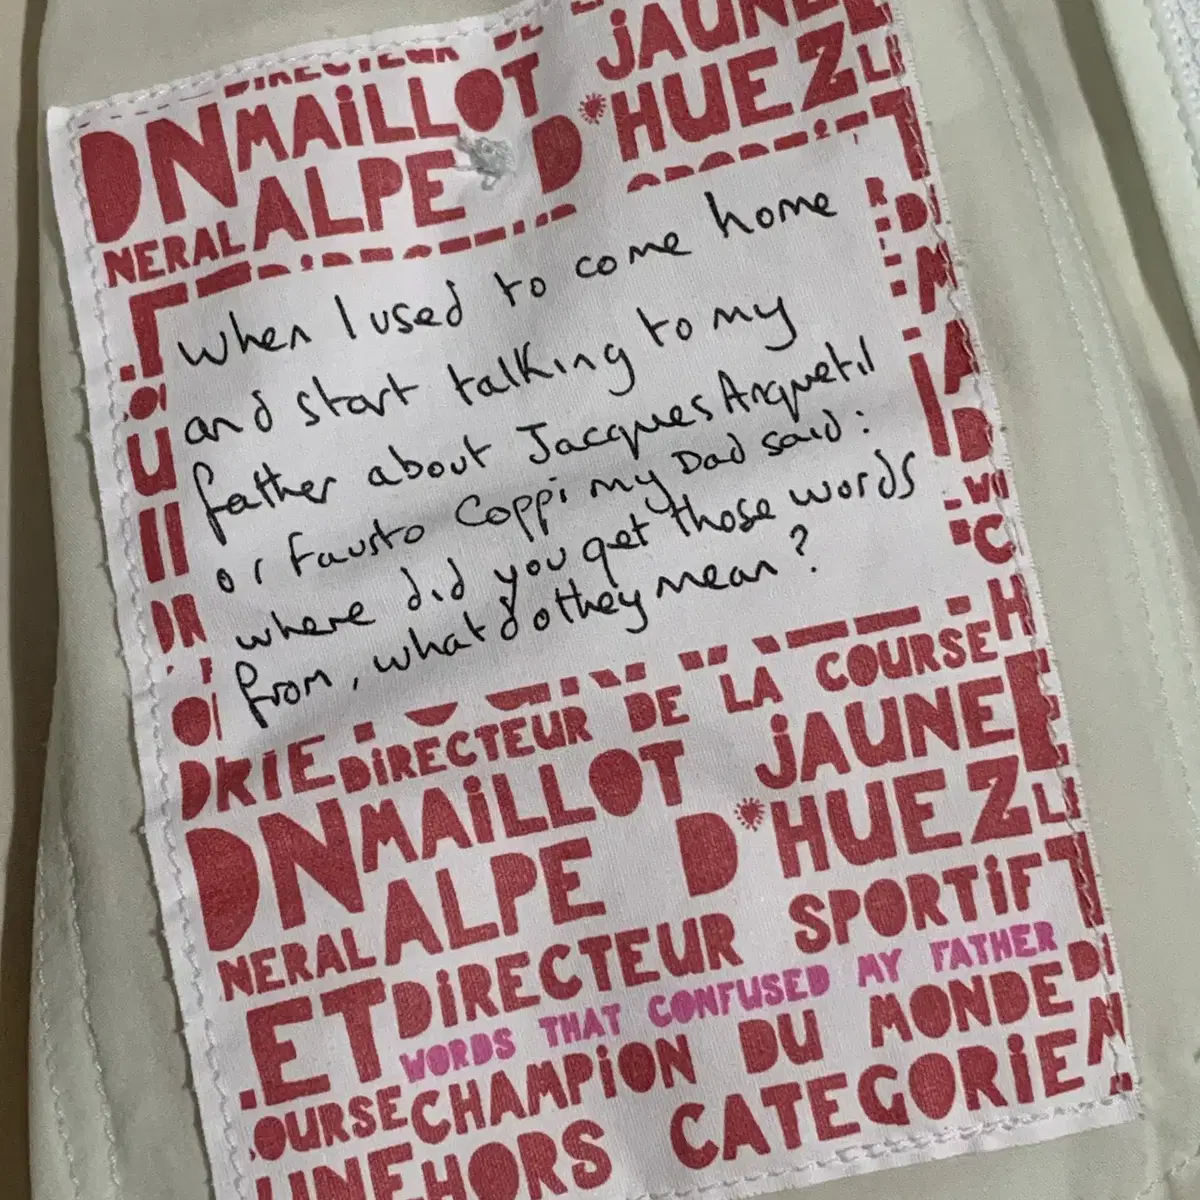 DIRECTEUR DE
JAUNE
DN MAILLOT
D*HUEZ LI
NERAL ALPE
When I used to come home
and start talking to my
father about Jacques Anquetil
or Fausto Coppi my Dad said:
where did you get those words
from, what do they mean?
DRIE DIRECTEUR DE LA COURSE H
DN MAILLOT JAUNE
NERAL ALPE D*HUEZ LI
.ET DIRECTEUR SPORTIF
WORDS THAT CONFUSED MY FATHER
OURSE CHAMPION DU MONDE DI
HORS CATEGORIE